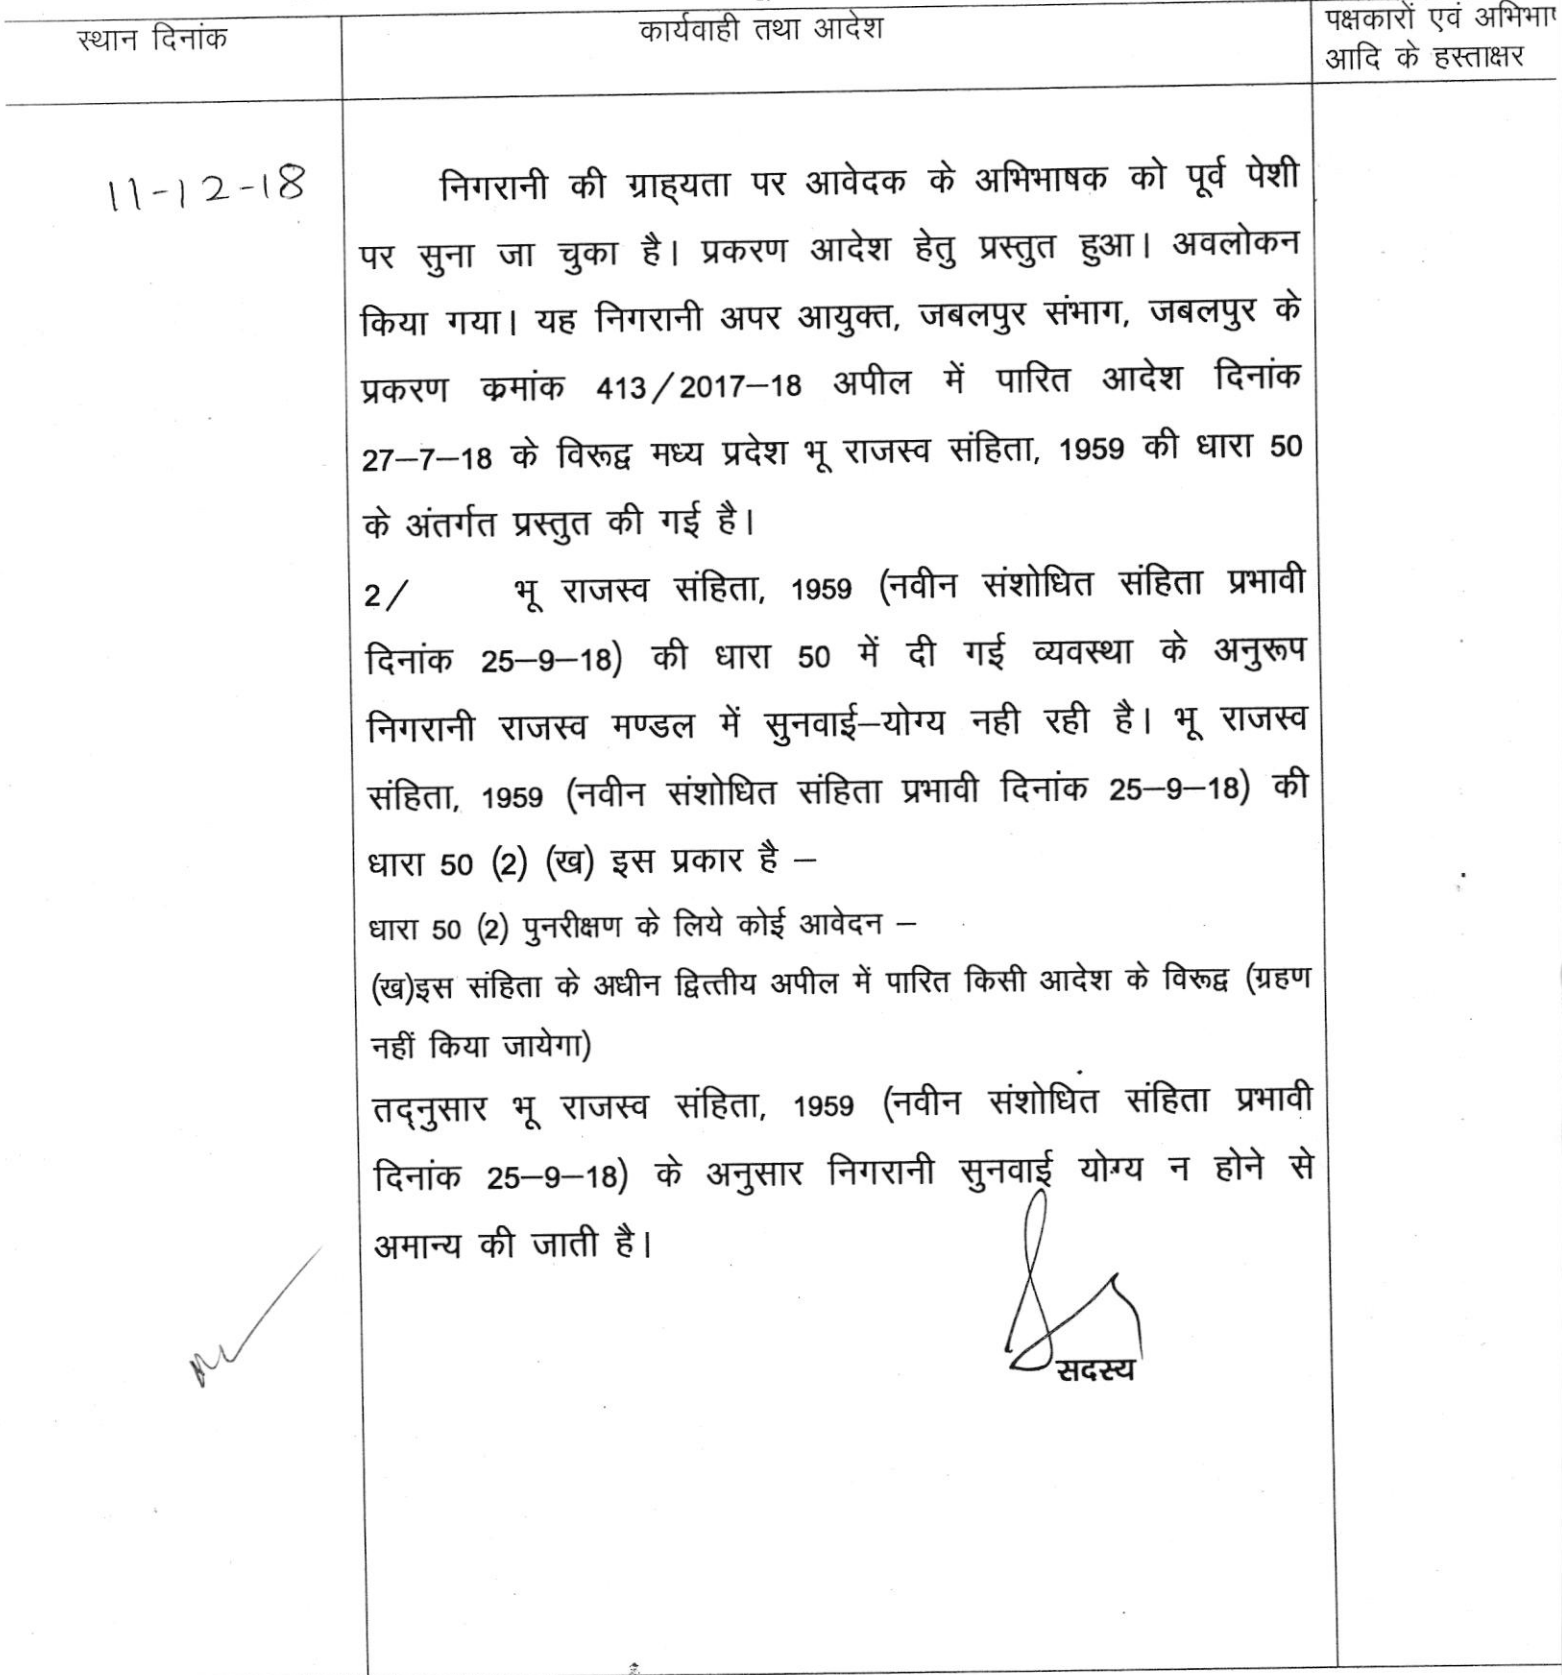 स्थान दिनांक
कार्यवाही तथा आदेश
पक्षकारों एवं
आदि के हस्ताक्षर
11-12-18
निगरानी की ग्राह्यता पर आवेदक के अभिभाषक को पूर्व पेशी
पर सुना जा चुका है। प्रकरण आदेश हेतु प्रस्तुत हुआ। अवलोकन
किया गया। यह निगरानी अपर आयुक्त, जबलपुर संभाग, जबलपुर के
प्रकरण क्रमांक 413/2017–18 अपील में पारित आदेश दिनांक
27–7–18 के विरूद्व मध्य प्रदेश भू राजस्व संहिता, 1959 की धारा 50
के अंतर्गत प्रस्तुत की गई है।
2/ भू राजस्व संहिता, 1959 (नवीन संशोधित संहिता प्रभावी
दिनांक 25–9–18) की धारा 50 में दी गई व्यवस्था के अनुरूप
निगरानी राजस्व मण्डल में सुनवाई–योग्य नही रही है। भू राजस्व
संहिता, 1959 (नवीन संशोधित संहिता प्रभावी दिनांक 25–9–18) की
धारा 50 (2) (ख) इस प्रकार है –
धारा 50 (2) पुनरीक्षण के लिये कोई आवेदन –
(ख)इस संहिता के अधीन द्वित्तीय अपील में पारित किसी आदेश के विरूद्व (ग्रहण
नहीं किया जायेगा)
तद्नुसार भू राजस्व संहिता, 1959 (नवीन संशोधित संहिता प्रभावी
दिनांक 25–9–18) के अनुसार निगरानी सुनवाई योग्य न होने से
अमान्य की जाती है।
सदस्य